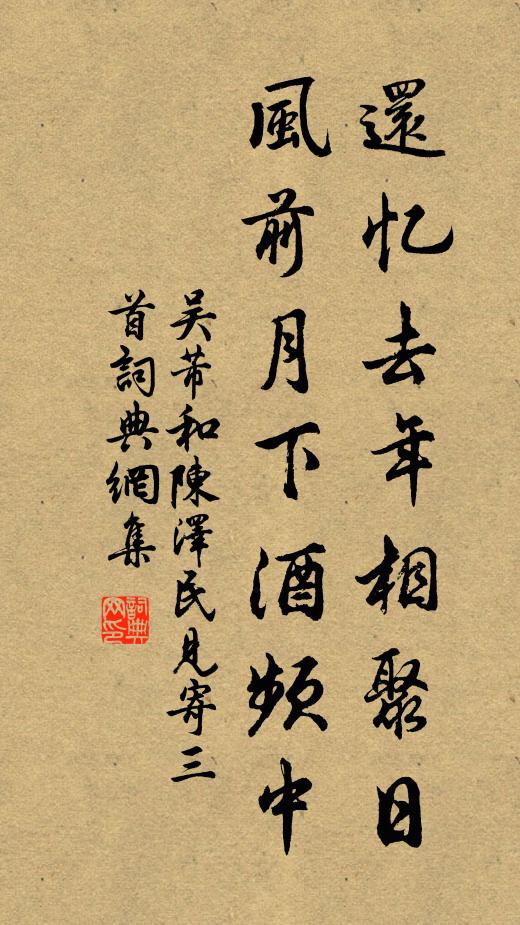 還忆去年相聚日
風前月下酒頻中
吴芾和陳澤民見寄三
首詞典網集
詞典
网印